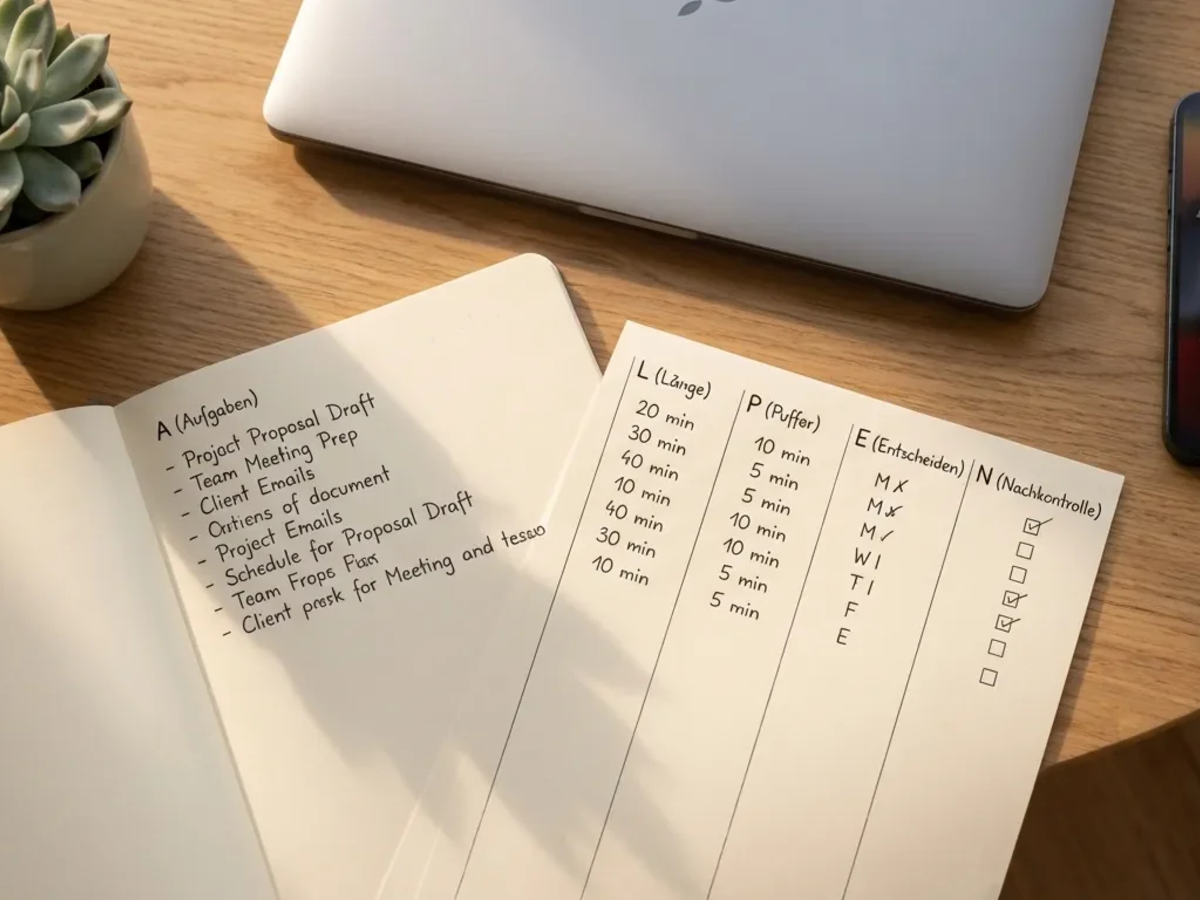 A (Aufgaben)
- Project Proposal Draft
- Team Meeting Prep
- Client Emails
- of document
- Project Emails
- Schedule for Proposal Draft
- Team
- Client for Meeting and
L (Länge)
20 min
30 min
40 min
10 min
40 min
30 min
10 min
P (Puffer)
10 min
5 min
5 min
10 min
10 min
5 min
5 min
E (Entscheiden)
M X
M
M ✓
W I
T I
F
E
N (Nachkontrolle)
☑
☐
☐
☑
☑
☐
☐